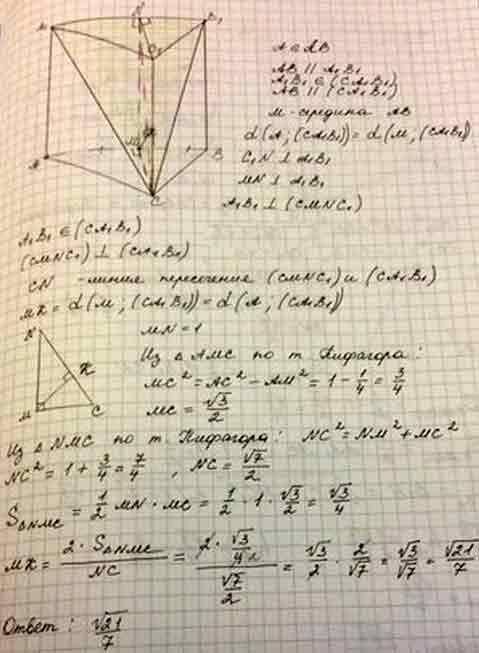 A ∈ AB
AB ∥ A₁B₁
A₁B₁ ∈ (CA₁B₁)
AB ∥ (CA₁B₁)
M - середина AB
d(A; (CA₁B₁)) = d(M, (CA₁B₁)
C₁N ⊥ A₁B₁
MN ⊥ A₁B₁
A₁B₁ ⊥ (CMNC₁)
A₁B₁ ∈ (CA₁B₁)
(CMNC₁) ⊥ (CA₁B₁)
CN - линия пересечения (CMNC₁) и (CA₁B₁)
MK = d(M; (CA₁B₁)) = d(A; (CA₁B₁))
MN = 1
N
K
M
C
Из △ AMC по т. Пифагора:
MC² = AC² - AM² = 1 - 1/4 = 3/4
MC = √3/2
Из △ NMC по т. Пифагора: NC² = NM² + MC²
NC² = 1 + 3/4 = 7/4, NC = √7/2
S△NMC = 1/2 MN · MC = 1/2 · 1 · √3/2 = √3/4
MK = 2 · S△NMC / NC = (2 · √3/4 2) / (√7/2) = √3/2 · 2/√7 = √3/√7 = √21/7
Ответ: √21/7